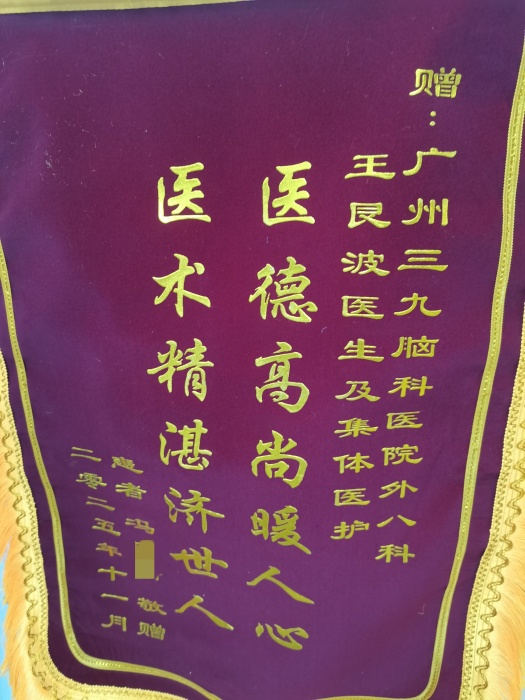 赠：广州三九脑科医院外八科
王艮波医生及集体医护
医德高尚暖人心
医术精湛济世人
患者冯 敬赠
二零二五年十一月